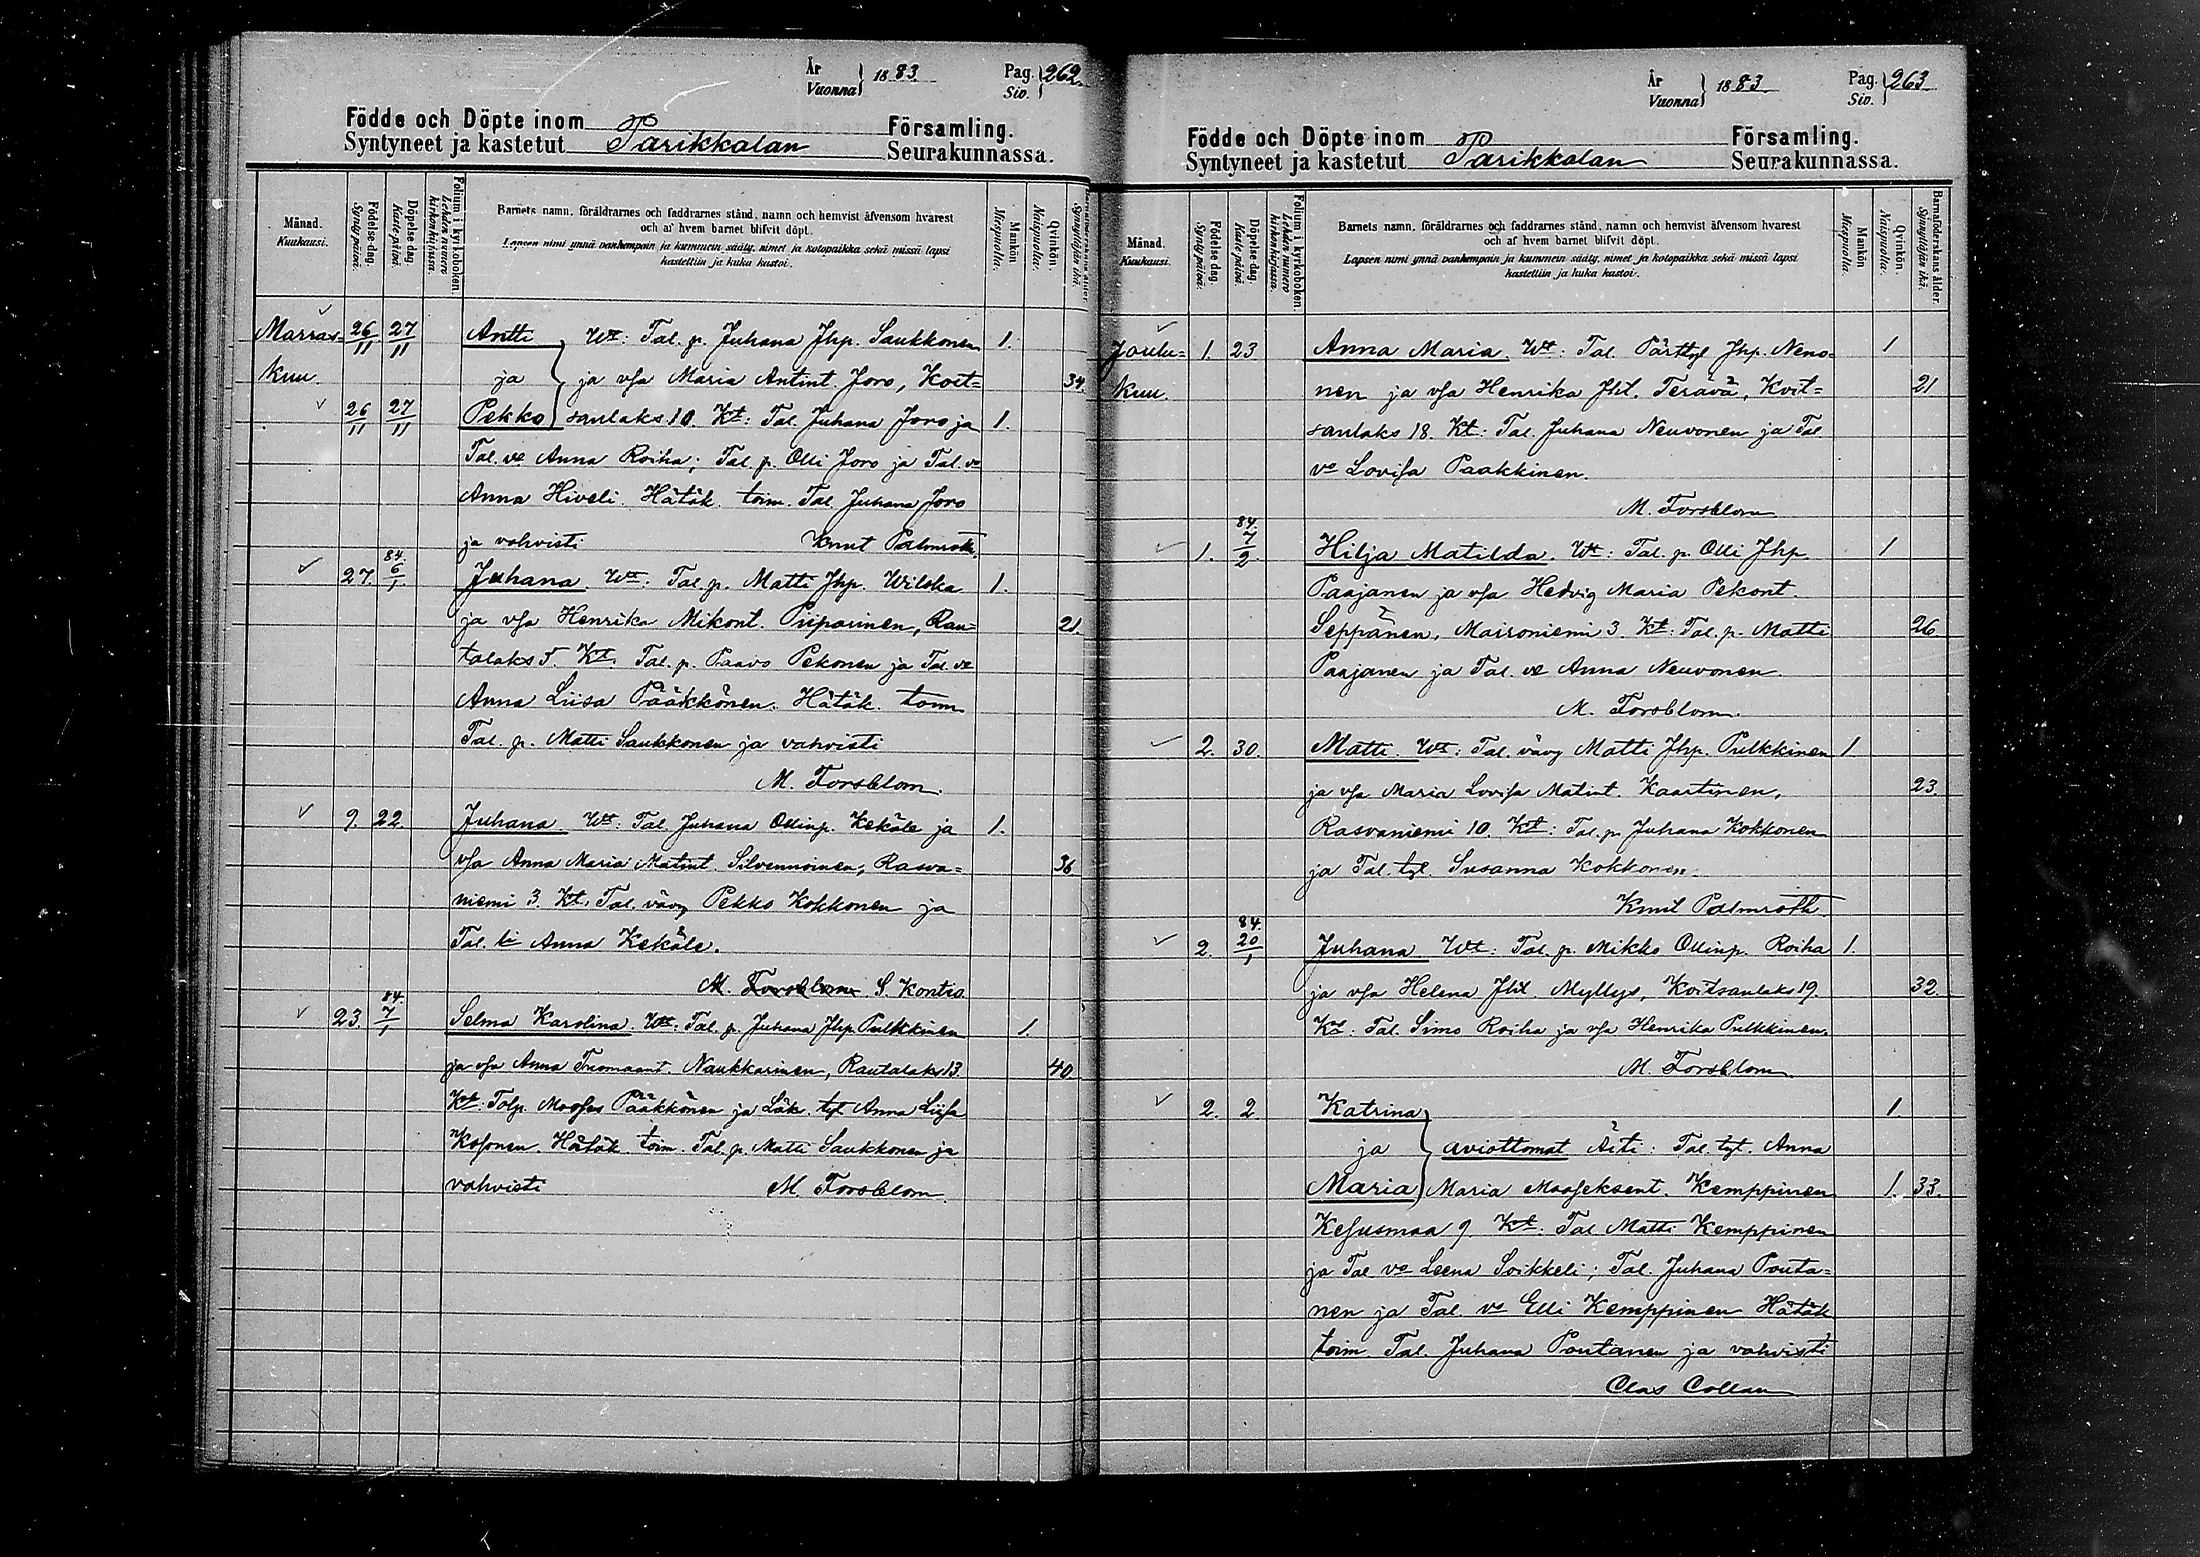 År Vuonna 1883. Pag. Siv. 262.
Födde och Döpte inom Församling.
Syntyneet ja kastetut Parikkalan Seurakunnassa.
Månad. Kuukausi.
Födelse dag. Synty päivä.
Döpelse dag. Kaste päivä.
Folium i kyrkoboken. Lehden numero kirkonkirjassa.
Barnets namn, föräldrarnes och faddrarnes stånd, namn och hemvist äfvensom hvarest
och af hvem barnet blifvit döpt.
Lapsen nimi ynnä vanhempain ja kummein sääty, nimet ja kotopaikka sekä missä lapsi
kastettiin ja kuka kastoi.
Mankön Miespuolia.
Qvinkön. Naispuolia.
Barnaföderskans ålder. Synnyttäjän ikä.
Marras- 26/11 27/11 Antti Wt: Tal. p. Juhana Jhp. Saukkonen 1.
kuu. ja ja vsa Maria Antint. Joro, Koit- 34.
26/11 27/11 Pekko sanlaks 10. Kt: Tal. Juhana Joro ja 1.
Tal. vo Anna Roiha; Tal. p. Olli Joro ja Tal. vo
Anna Hiveli. Hätäk. toim. Tal. Juhana Joro
ja vahvisti Knut Palmroth.
27. 84. 6/1 Juhana Wt: Tal. p. Matti Jhp. Wilska 1.
ja vsa Henrika Mikont. Piiparinen, Rau- 21.
talaks 5. Kt. Tal. p. Paavo Pekonen ja Tal. vo
Anna Liisa Pääkkönen. Hätäk. toim
Tal. p. Matti Saukkonen ja vahvisti
M. Forsblom.
9. 22. Juhana Wt: Tal Juhana Ollinp. Kekäle ja 1.
vsa Anna Maria Matint. Silvennoinen, Rasva- 36
niemi 3. Kt. Tal. vävy Pekko Kokkonen ja
Tal. li Anna Kekäle.
M. Forsblom S. Kontio
23. 84. 7/1 Selma Karolina. Wt: Tal. p. Juhana Jhp. Pulkkinen 1.
ja vsa Anna Tuomaant. Naukkarinen, Rautalaks 13. 40.
Kt: Tal p. Mooses Pääkkönen ja Läk. tyt Anna Liisa
Kosonen. Hätäk. toim. Tal. p. Matti Saukkonen ja
vahvisti M. Forsblom.
År Vuonna 1883. Pag. Siv. 263.
Födde och Döpte inom Församling.
Syntyneet ja kastetut Parikkalan Seurakunnassa.
Månad. Kuukausi.
Födelse dag. Synty päivä.
Döpelse dag. Kaste päivä.
Folium i kyrkoboken. Lehden numero kirkonkirjassa.
Barnets namn, föräldrarnes och faddrarnes stånd, namn och hemvist äfvensom hvarest
och af hvem barnet blifvit döpt.
Lapsen nimi ynnä vanhempain ja kummein sääty, nimet ja kotopaikka sekä missä lapsi
kastettiin ja kuka kastoi.
Mankön Miespuolia.
Qvinkön. Naispuolia.
Barnaföderskans ålder. Synnyttäjän ikä.
Joulu- 1. 23 Anna Maria. Wt: Tal. Pärttyl Jhp. Neno- 1
kuu. nen ja vsa Henrika Jht. Terävä, Koit- 21
sanlaks 18. Kt: Tal. Juhana Neuvonen ja Tal
vo Lovisa Paakkinen.
M. Forsblom
1. 84. 7/2 Hilja Matilda. Wt: Tal. p. Olli Jhp. 1
Paajanen ja vsa Hedvig Maria Pekont.
Seppänen, Maironiemi 3. Kt: Tal. p. Matti 26
Paajanen ja Tal. vo Anna Neuvonen.
M. Forsblom.
2. 30. Matti. Wt: Tal. vävy Matti Jhp. Pulkkinen 1
ja vsa Maria Lovisa Matint. Kaartinen, 23.
Rasvaniemi 10. Kt: Tal. p. Juhana Kokkonen
ja Tal. tyt. Susanna Kokkonen.
Knut Palmroth
2. 84. 20/1 Juhana. Wt: Tal. p. Mikko Ollinp. Roiha 1.
ja vsa Helena Jht. Myllys, Koitsanlaks 19. 32.
Kt: Tal. Simo Roiha ja vsa Henrika Pulkkinen.
M. Forsblom.
2. 2 Katrina 1.
ja aviottomat Äiti: Tal. tyt. Anna
Maria Maria Mooseksent. Kemppinen 1. 33.
Kesusmaa 9. Kt: Tal Matti Kemppinen
ja Tal vo Leena Soikkeli; Tal. Juhana Pouta-
nen ja Tal. vo Elli Kemppinen Hätäk
toim. Tal. Juhana Poutanen ja vahvisti
Clas Collan